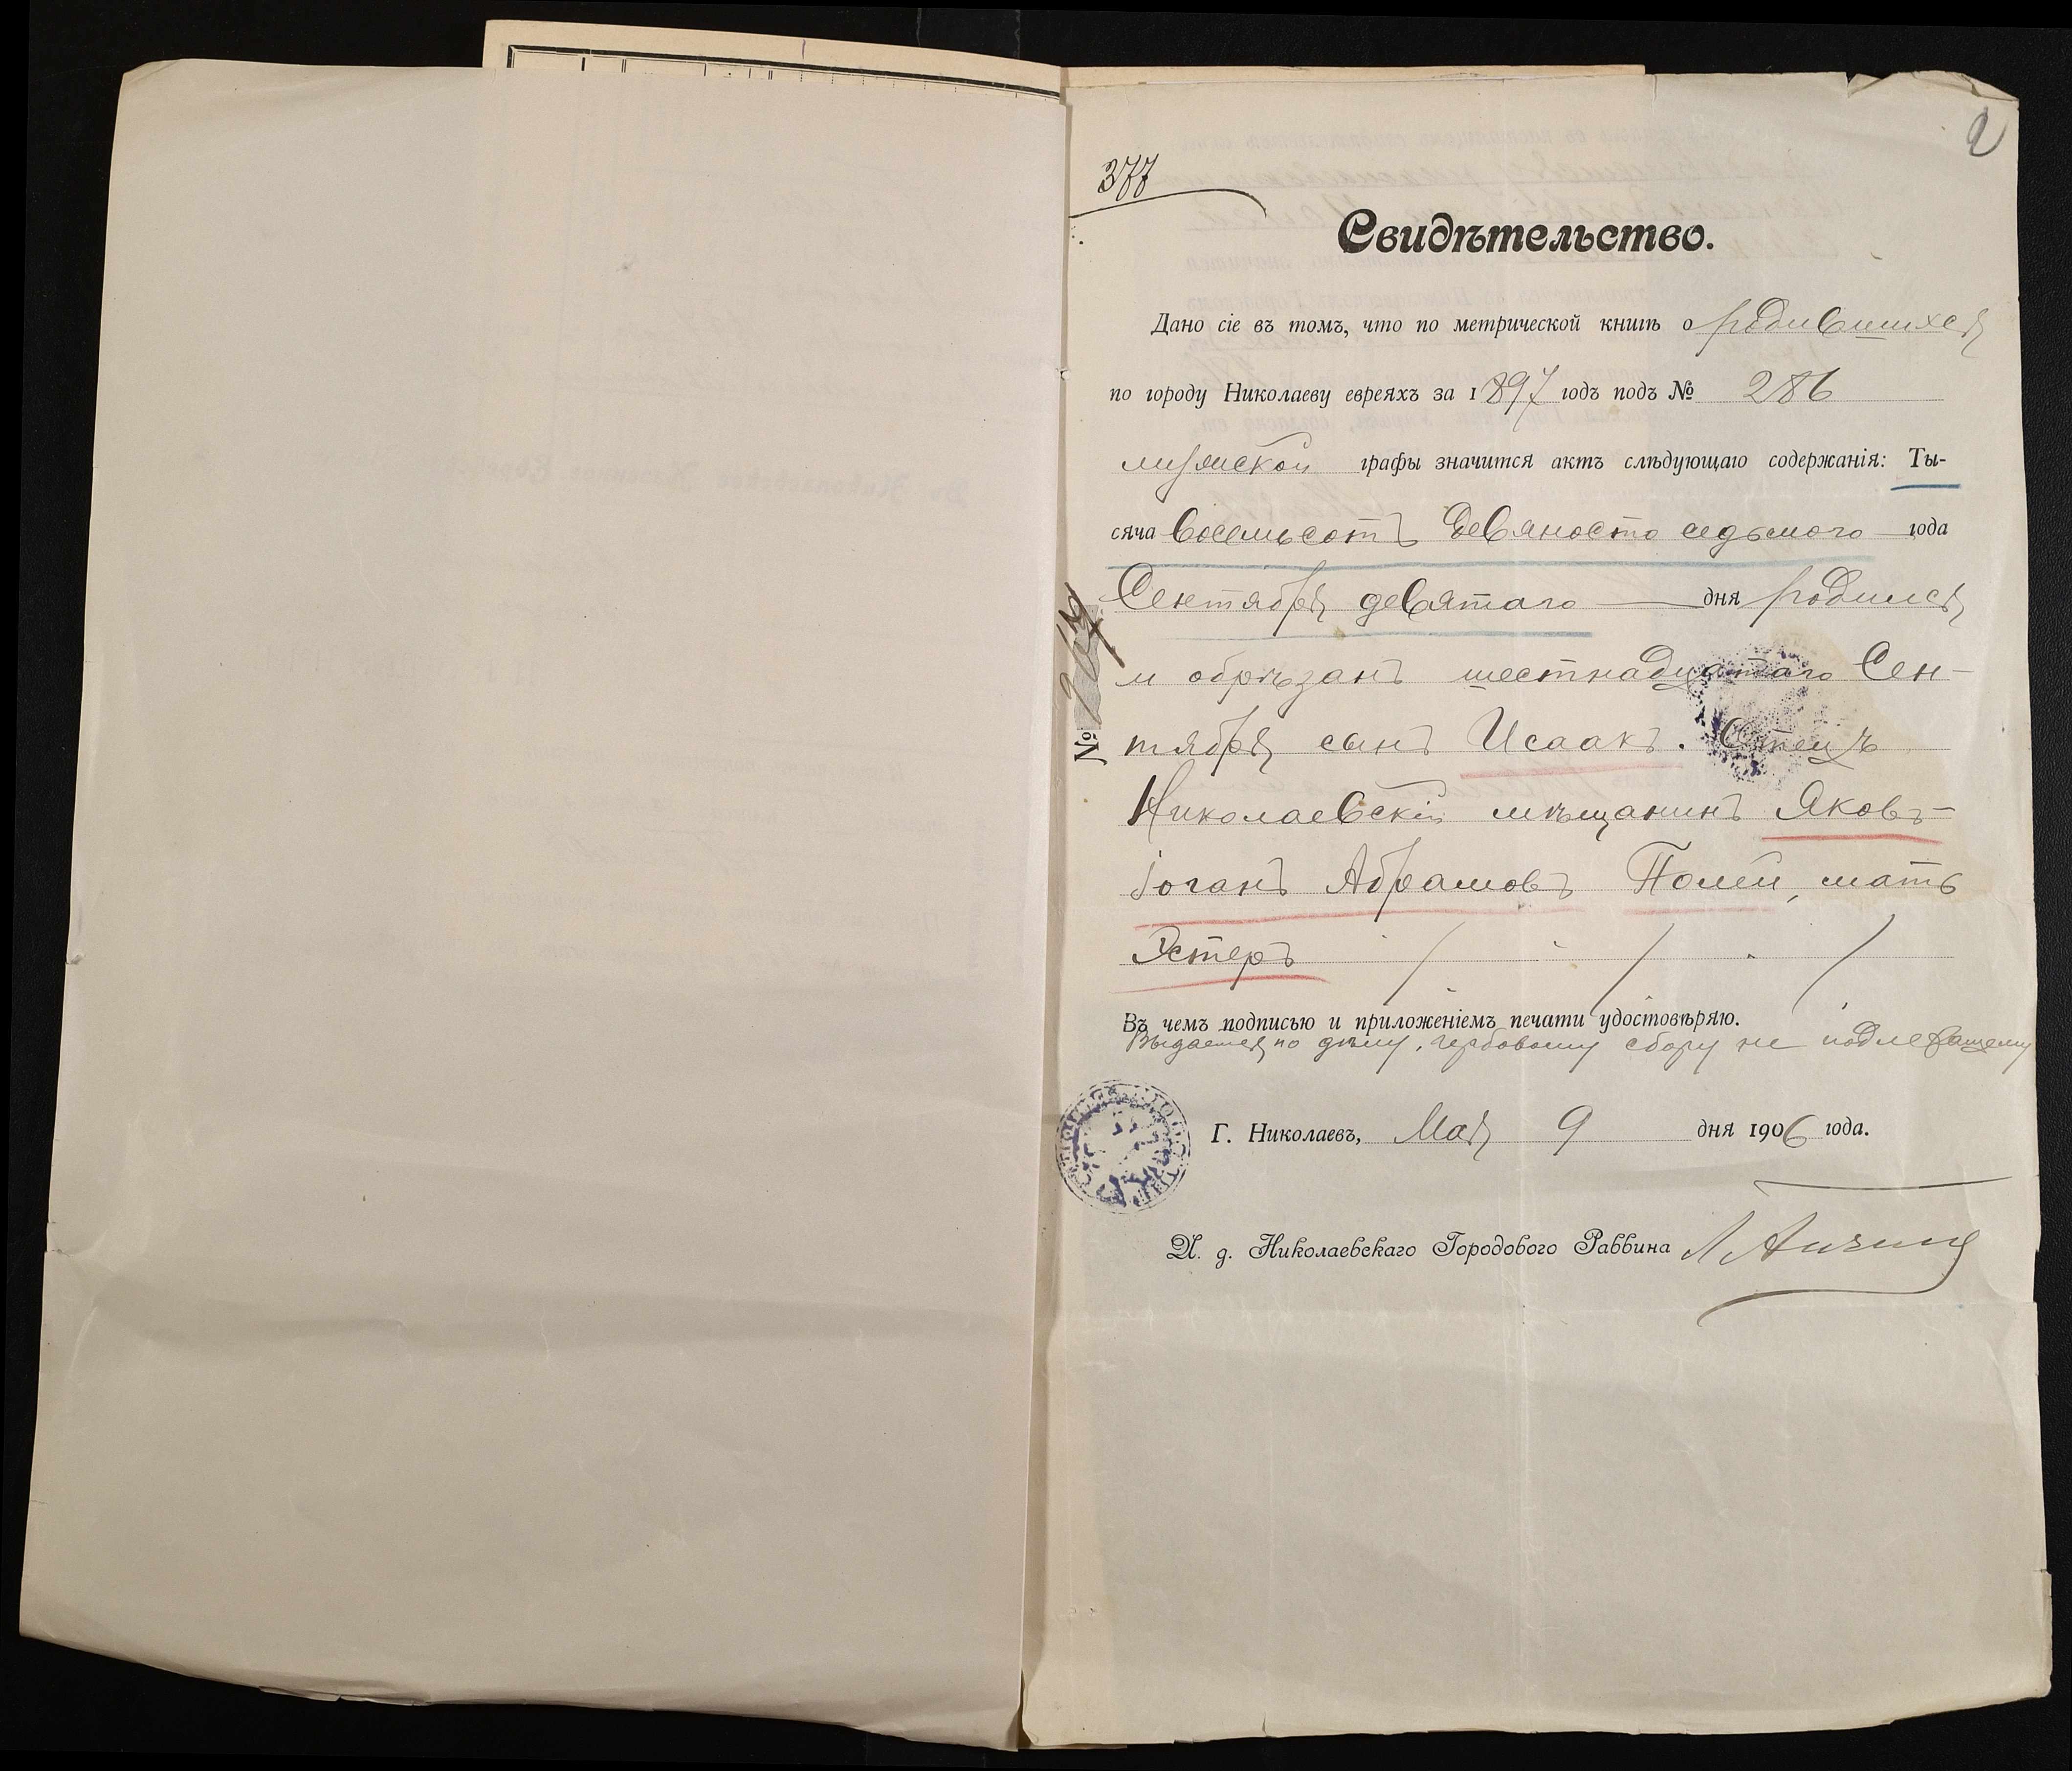 2
377
Свидѣтельство.
Дано сіе въ томъ, что по метрической книгѣ о родившихся
по городу Николаеву евреяхъ за 1897 годъ подъ № 286
мужской графы значится актъ слѣдующаго содержанія: Ты-
сяча восемьсотъ девяносто седьмого года
Сентября девятаго дня родился
и обрѣзанъ шестнадцатаго Сен-
тября сынъ Исаакъ. Отецъ
Николаевскій мѣщанинъ Яковъ-
Іоганъ Абрамовъ Полей, мать
Эстеръ
Въ чемъ подписью и приложеніемъ печати удостовѣряю.
Выдается по дѣлу, гербовому сбору не подлежащему
Г. Николаевъ, Мая 9 дня 1906 года.
И. д. Николаевскаго Городового Раввина
№